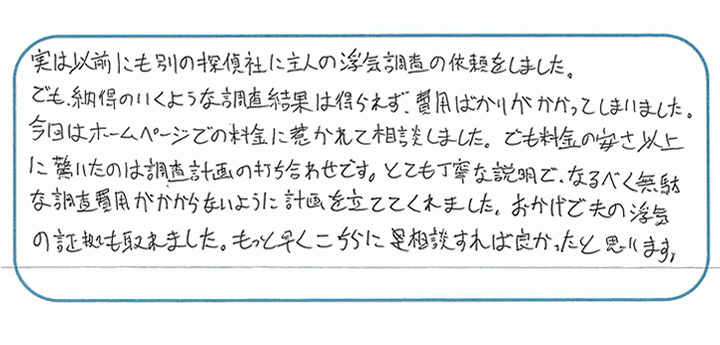 実は以前にも別の探偵社に主人の浮気調査の依頼をしました。
でも、納得のいくような調査結果は得られず、費用ばかりがかかってしまいました。
今回はホームページでの料金に惹かれて相談しました。でも料金の安さ以上
に驚いたのは調査計画の打ち合わせです。とても丁寧な説明で、なるべく無駄
な調査費用がかからないように計画を立ててくれました。おかげで夫の浮気
の証拠も取れました。もっと早くこちらに相談すれば良かったと思います。